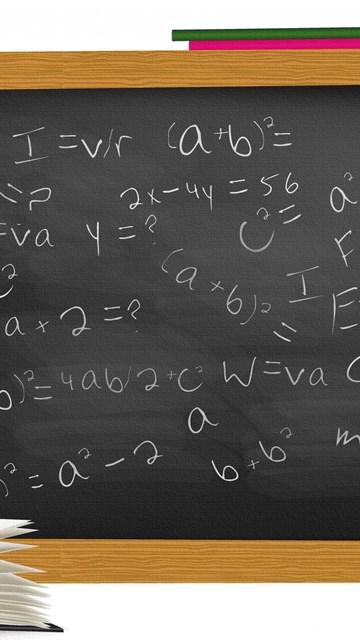 I = v/r (a+b)² =
= ?
2x - 4y = 56
a²
= va y = ?
c² =
F
(a + b)² =
I
E
a + 2 = ?
b)² = 4ab/2 + c² W = va
a
)² = a² - 2
b + b²
m